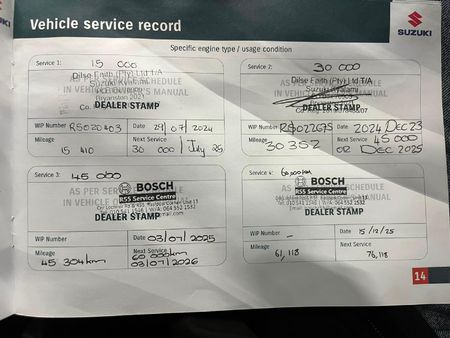 Vehicle service record
SUZUKI
Specific engine type / usage condition
Service 1: 15 000
Dilse Faith (Pty) Ltd T/A
Suzuki Kyalami
AS PER SERVICE SCHEDULE
IN VEHICLE OWNER'S MANUAL
Bryanston 2021
DEALER STAMP
WIP Number RS020403 Date 29/07/2024
Mileage 15 410 Next Service 30 000 / July 25
Service 2: 30 000
Dilse Faith (Pty) Ltd T/A
Suzuki Kyalami
DEALER STAMP
WIP Number RS022675 Date 2024 DEC 23
Mileage 30 352 Next Service 45 000
OR DEC 2025
Service 3: 45 000
AS PER
IN VEHICLE
BOSCH
RSS Service Centre
DEALER STAMP
WIP Number Date 03/07/2025
Mileage 45 304km Next Service 60 000km
03/07/2026
Service 4: 60,000km
BOSCH
RSS Service Centre
DEALER STAMP
WIP Number - Date 15/12/25
Mileage 61,118 Next Service 76,118
14